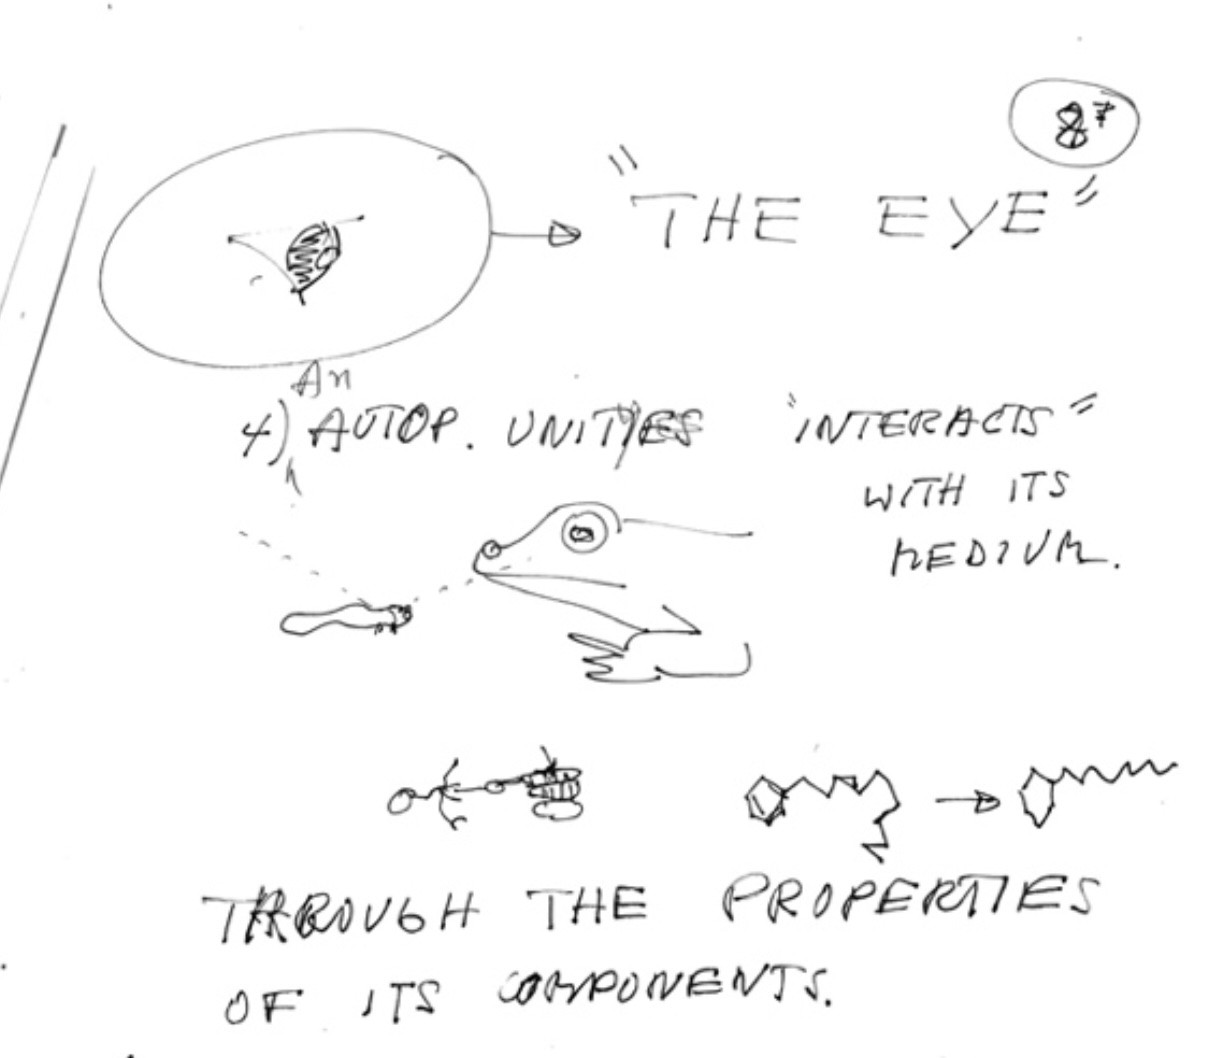 8
"THE EYE"
An
4) AUTOP. UNITY "INTERACTS"
WITH ITS
MEDIUM.
THROUGH THE PROPERTIES
OF ITS COMPONENTS.